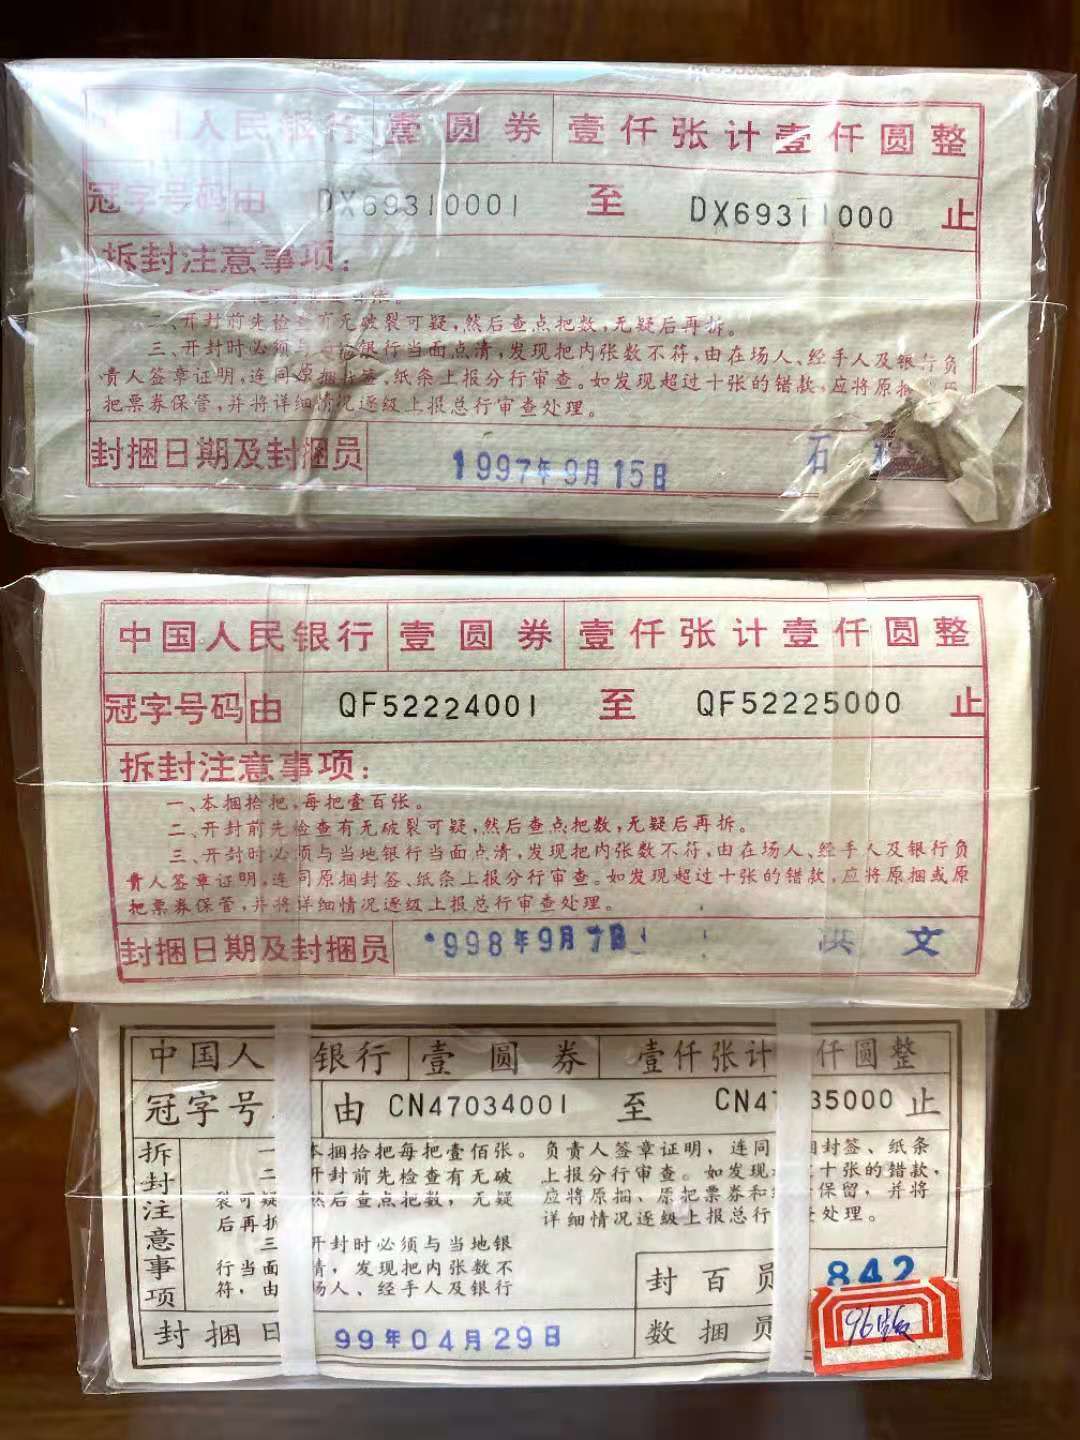 中国人民银行 壹圆券 壹仟张计壹仟圆整
冠字号码由 DX69310001 至 DX69311000 止
拆封注意事项：
二、开封前先检查有无破裂可疑，然后查点把数，无疑后再拆。
三、开封时必须与当地银行当面点清，发现把内张数不符，由在场人、经手人及银行负
责人签章证明，连同原捆封签、纸条上报分行审查。如发现超过十张的错款，应将原捆
把票券保管，并将详细情况逐级上报总行审查处理。
封捆日期及封捆员 1997年9月15日 石
中国人民银行 壹圆券 壹仟张计壹仟圆整
冠字号码由 QF52224001 至 QF52225000 止
拆封注意事项：
一、本捆拾把，每把壹百张。
二、开封前先检查有无破裂可疑，然后查点把数，无疑后再拆。
三、开封时必须与当地银行当面点清，发现把内张数不符，由在场人、经手人及银行负
责人签章证明，连同原捆封签、纸条上报分行审查。如发现超过十张的错款，应将原捆或原
把票券保管，并将详细情况逐级上报总行审查处理。
封捆日期及封捆员 998年9月7日 洪文
中国人 银行 壹圆券 壹仟张计 仟圆整
冠字号 由 CN47034001 至 CN47 35000 止
拆封注意事项
一 本捆拾把每把壹佰张。
二 开封前先检查有无破
裂可疑 然后查点把数，无疑
后再拆
三 开封时必须与当地银
行当面 清，发现把内张数不
符，由 场人、经手人及银行
负责人签章证明，连同 封签、纸条
上报分行审查。如发现 十张的错款，
应将原捆、原把票券和 保留，并将
详细情况逐级上报总行 查处理。
封百员 842
封捆日 99年04月29日 数捆员
96版